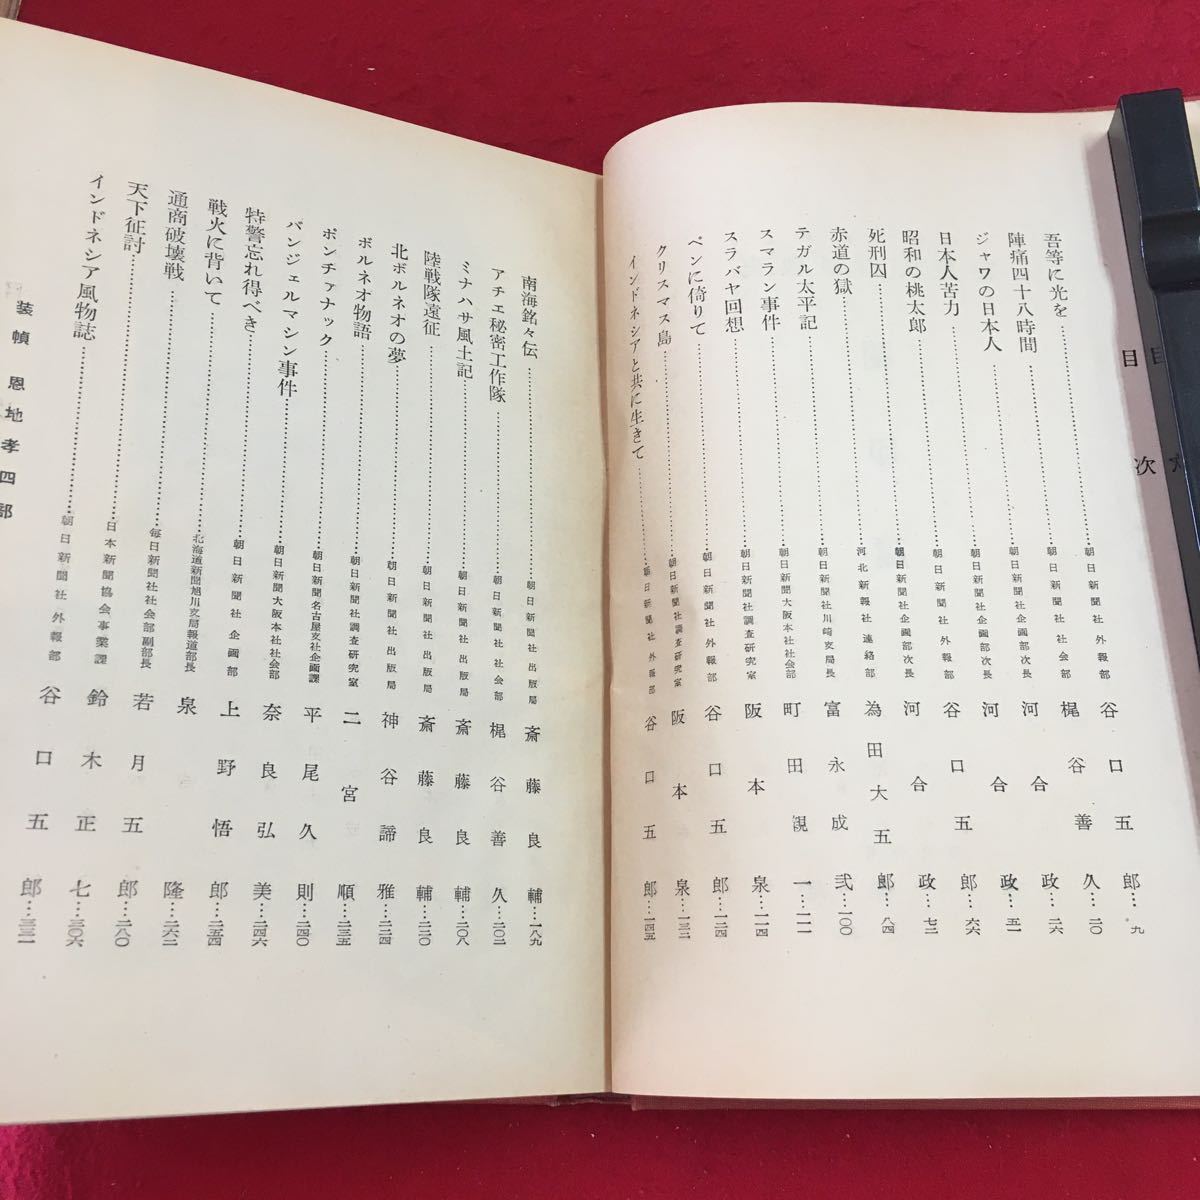 目次
吾等に光を……朝日新聞社外報部 谷口五郎…九
陣痛四十八時間……朝日新聞社社会部 梶谷善久…二〇
ジャワの日本人……朝日新聞社企画部次長 河合政…二六
日本人苦力……朝日新聞社企画部次長 河合政…五一
昭和の桃太郎……朝日新聞社外報部 谷口五郎…六六
死刑囚……朝日新聞社企画部次長 河合政…七二
赤道の獄……河北新報社連絡部 為田大五郎…八四
テガル太平記……朝日新聞社川崎支局長 富永成弐…一〇〇
スマラン事件……朝日新聞大阪本社社会部 町田観一…一一一
スラバヤ回想……朝日新聞社調査研究室 阪本泉…一一四
ペンに倚りて……朝日新聞社外報部 谷口五郎…一二四
クリスマス島……朝日新聞社調査研究室 阪本泉…一三二
インドネシアと共に生きて……朝日新聞社外報部 谷口五郎…一四五
南海銘々伝……朝日新聞社出版局 斎藤良輔…一八九
アチェ秘密工作隊……朝日新聞社社会部 梶谷善久…二〇二
ミナハサ風土記……朝日新聞社出版局 斎藤良輔…二〇八
陸戦隊遠征……朝日新聞社出版局 斎藤良輔…二二〇
北ボルネオの夢……朝日新聞社出版局 神谷諦雅…二二四
ボルネオ物語……朝日新聞社調査研究室 二宮順…二三五
ポンチァナック……朝日新聞名古屋支社企画課 平尾久則…二四〇
バンジェルマシン事件……朝日新聞大阪本社社会部 奈良弘美…二四六
特警忘れ得べき……朝日新聞社企画部 上野悟郎…二五四
戦火に背いて……北海道新聞旭川支局報道部長 泉隆…二六二
通商破壊戦……毎日新聞社社会部副部長 若月五郎…二八〇
天下征討……日本新聞協会事業課 鈴木正七…三〇六
インドネシア風物誌……朝日新聞社外報部 谷口五郎…三三一
装幀 恩地孝四郎